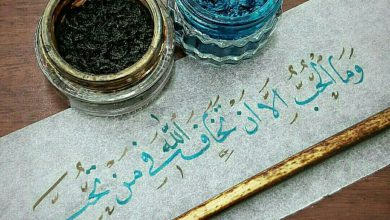 وَمَا الحُبُّ إلّا أن تَخَافَ اللهَ في مَن تُحِبّ